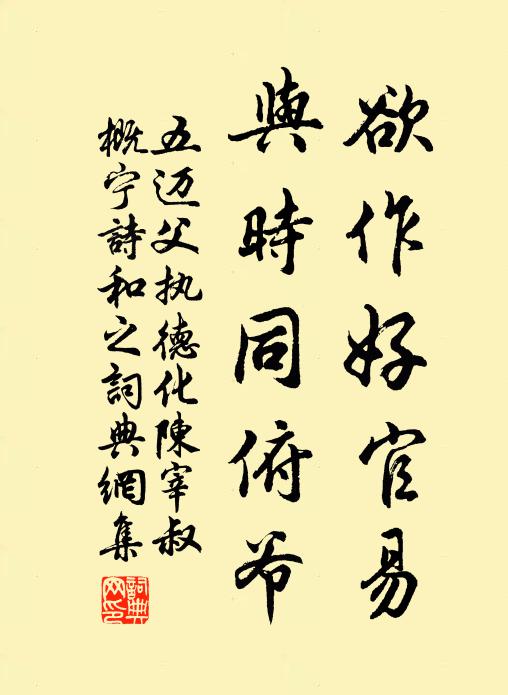 欲作好官易
與時同俯爷
五迈父执德化陳宰叔
概宁詩和之詞典網集
詞典網印